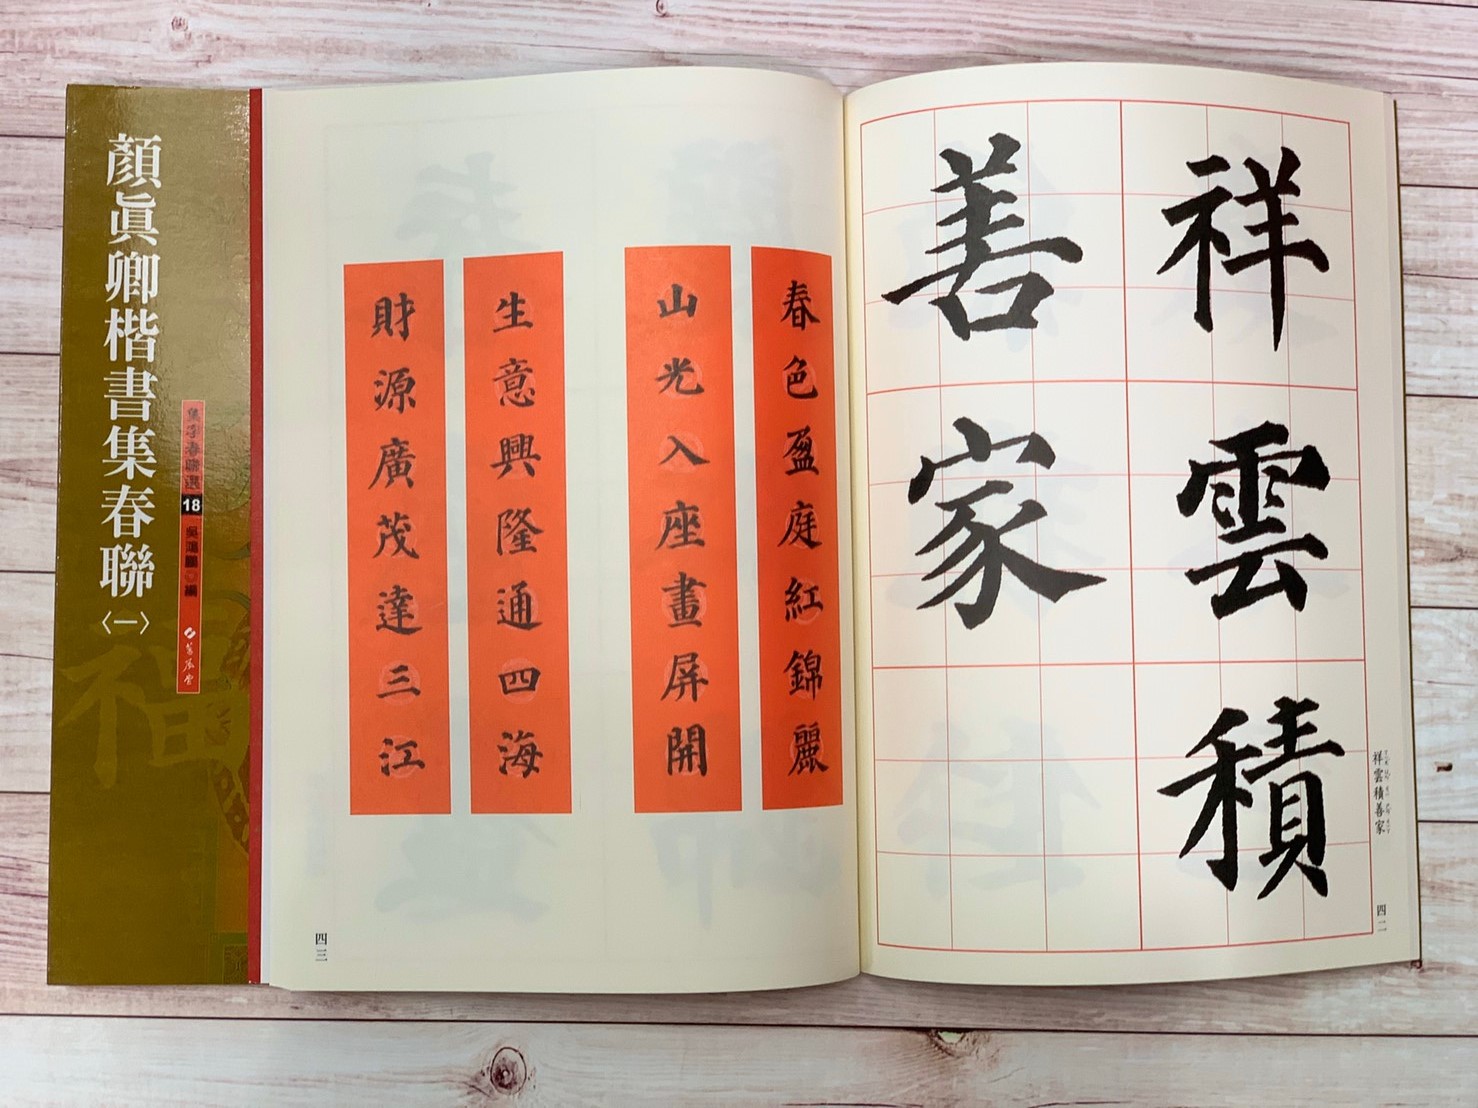 祥雲積
善家
祥雲積善家
四二
春色盈庭紅錦麗
山光入座畫屏開
生意興隆通四海
財源廣茂達三江
四三
顏眞卿楷書集春聯〈一〉
集字春聯選
18
吳鴻鵬 編
蕙風堂